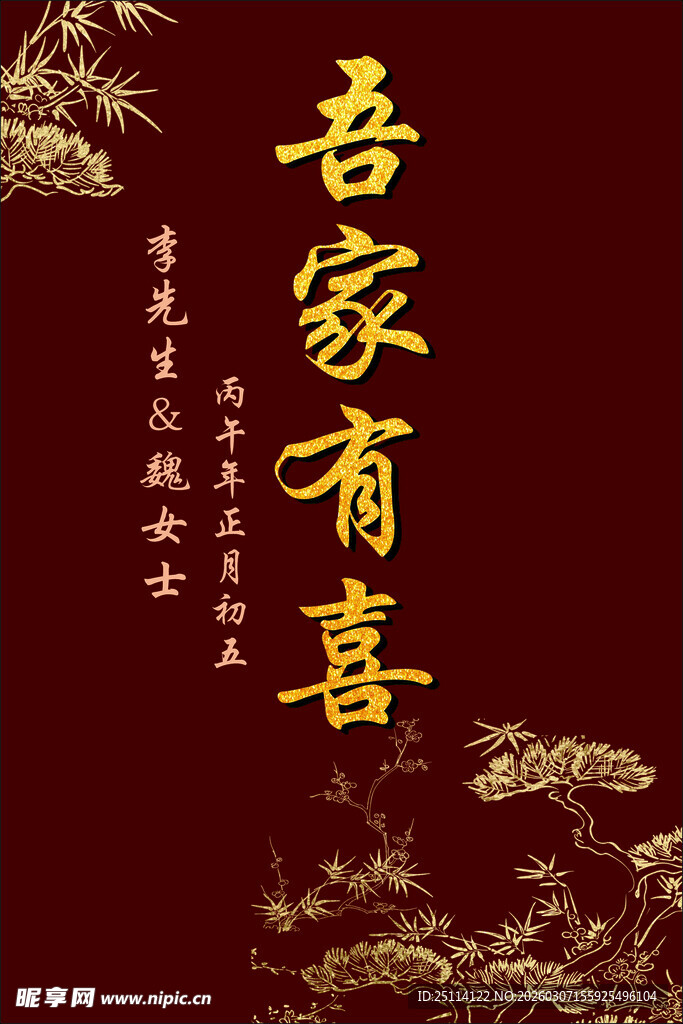 吾家有喜
丙午年正月初五
李先生&魏女士
昵享网 www.nipic.cn
ID:25114122 NO:20260307155925496104